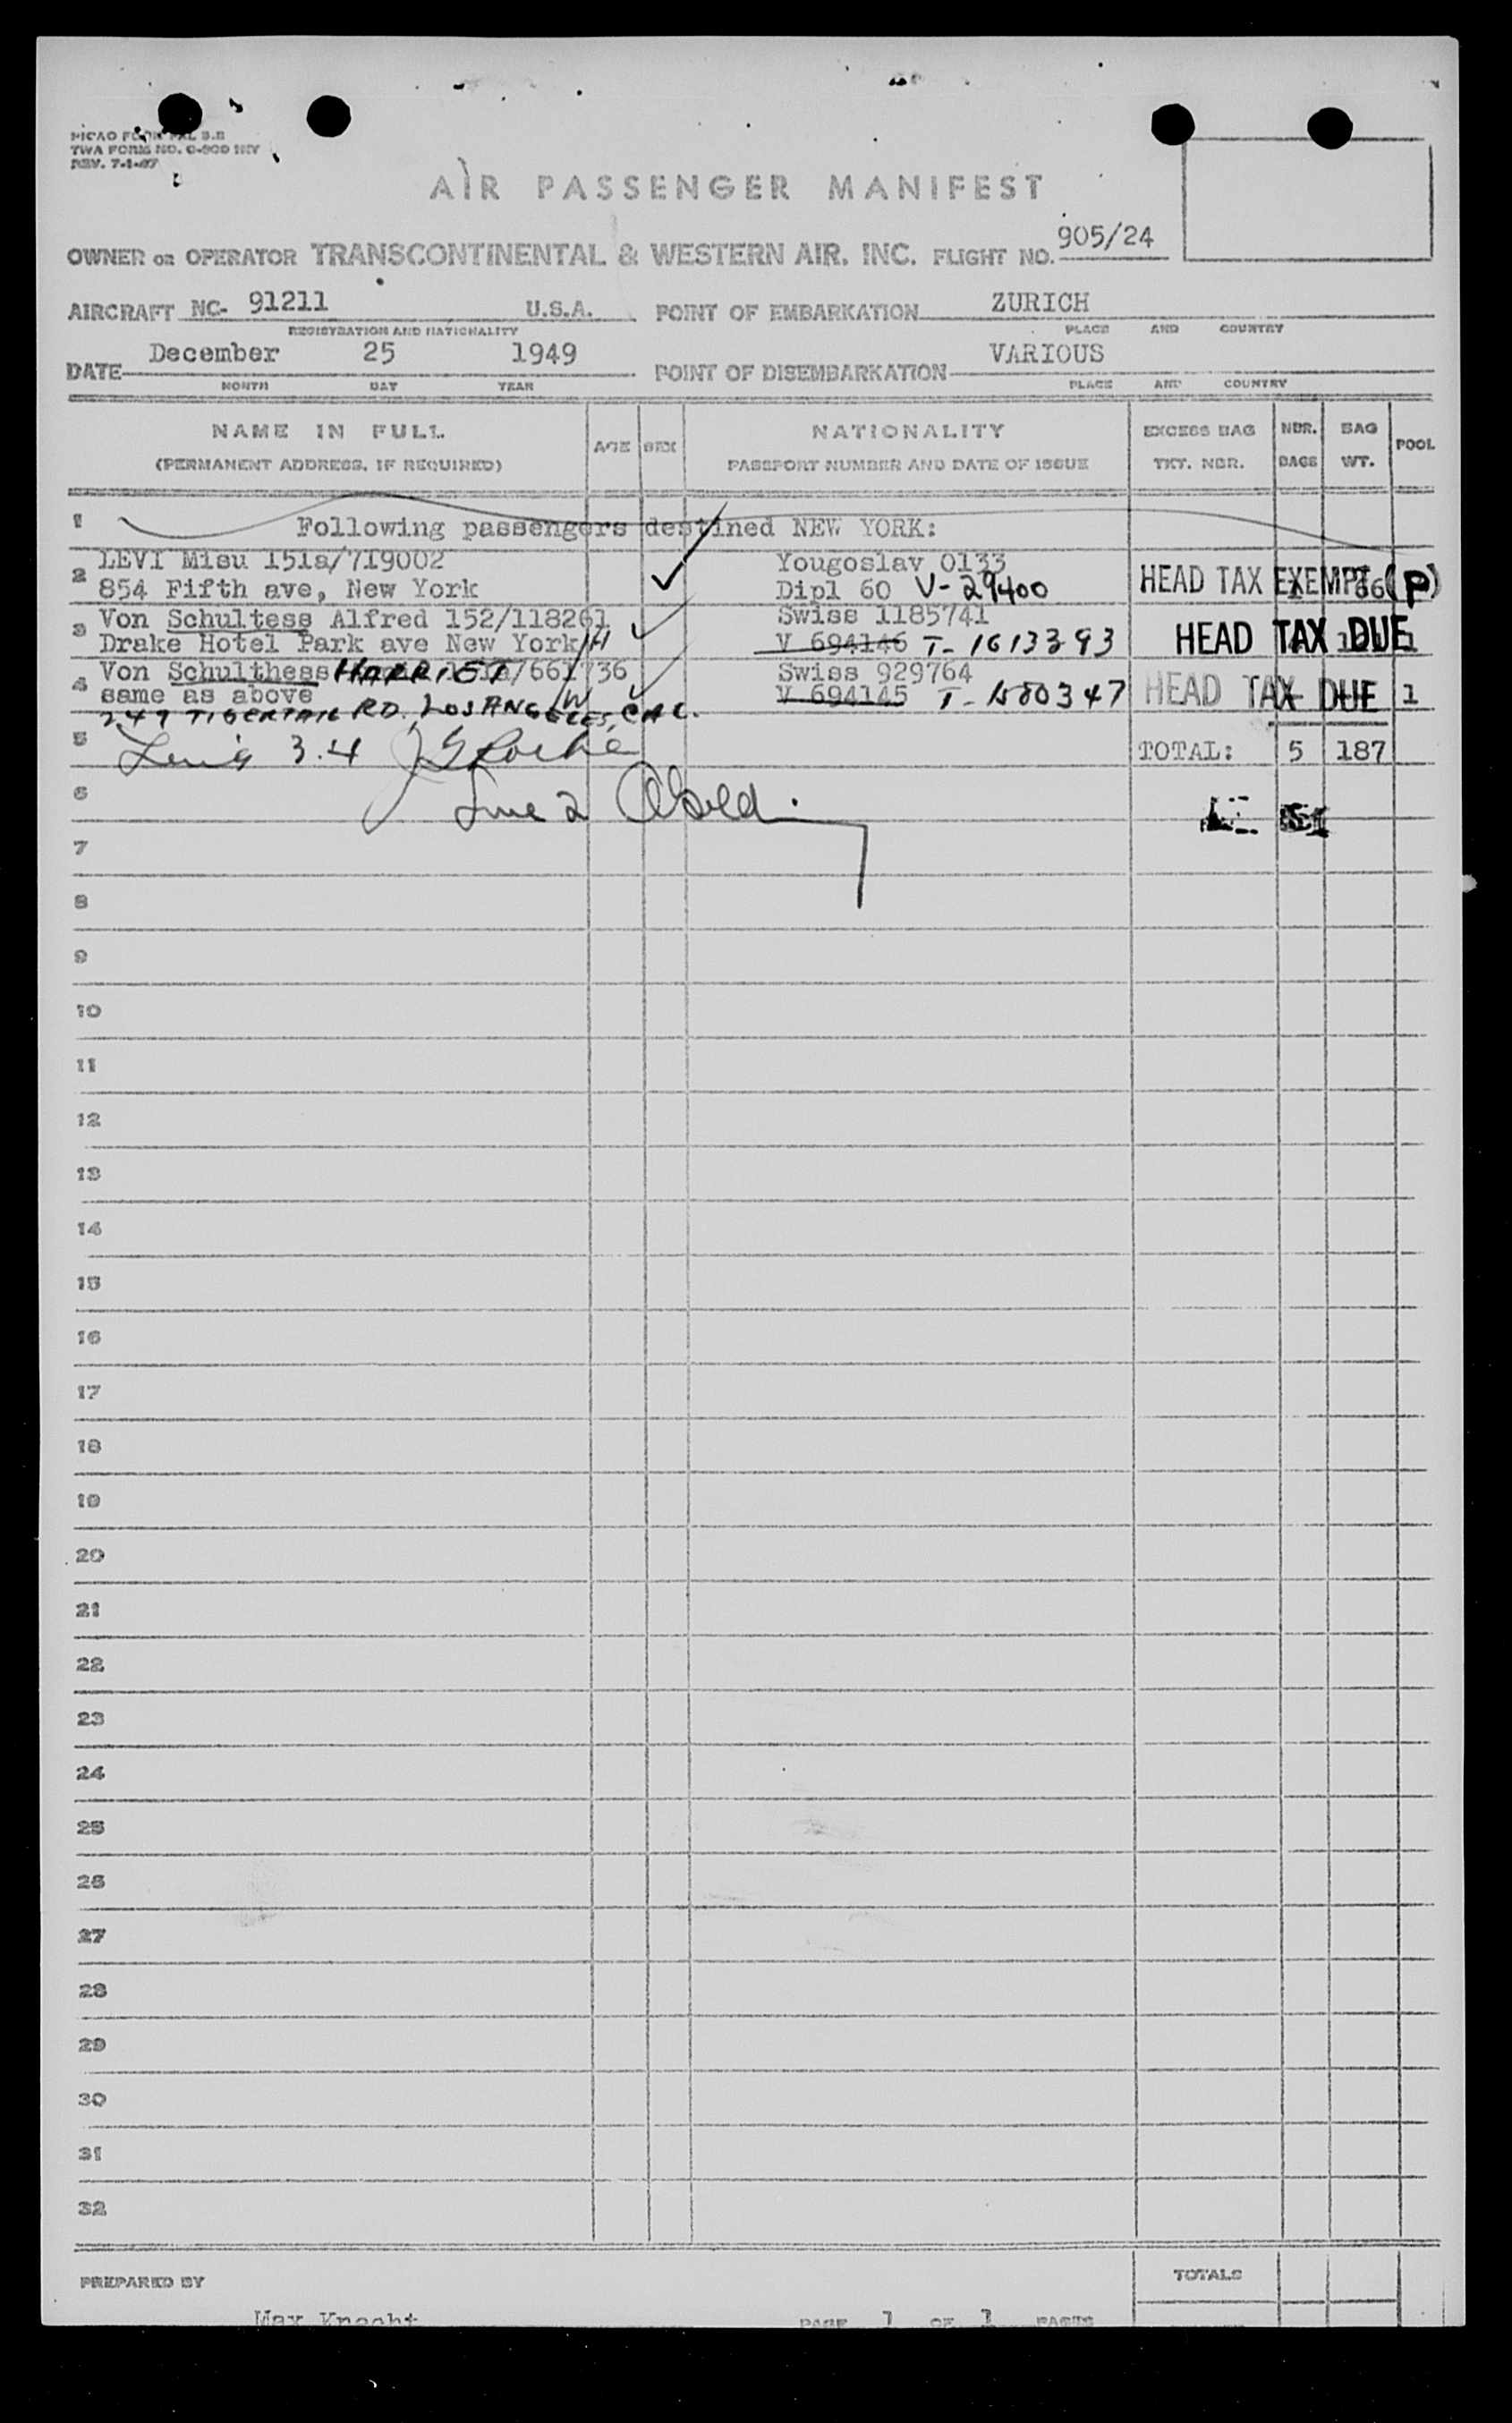 AIR PASSENGER MANIFEST
TWA FORM NO.
REV.
OWNER OR OPERATOR TRANSCONTINENTAL & WESTERN AIR. INC. FLIGHT NO. 905/24
AIRCRAFT NC- 91211 U.S.A. POINT OF EMBARKATION ZURICH
REGISTRATION AND NATIONALITY PLACE AND COUNTRY
DATE December 25 1949 POINT OF DISEMBARKATION VARIOUS
MONTH DAY YEAR PLACE AND COUNTRY
NAME IN FULL AGE SEX NATIONALITY EXCESS BAG NBR. BAG POOL
(PERMANENT ADDRESS, IF REQUIRED) PASSPORT NUMBER AND DATE OF ISSUE TKT. NBR. BAGS WT.
1 Following passengers destined NEW YORK:
2 LEVI Misu 151a/719002 Yougoslav 0133
854 Fifth ave, New York Dipl 60 V-29400 HEAD TAX EXEMPT (P)
3 Von Schultess Alfred 152/118261 Swiss 1185741
Drake Hotel Park ave New York H V 694146 T-1613393 HEAD TAX DUE
4 Von Schulthess HARRIET Swiss 929764
same as above W V 694145 HEAD TAX DUE 1
249 TIGERTAIL RD. LOS ANGELES, CAL.
5 3.4 TOTAL: 5 187
6
7
8
9
10
11
12
13
14
15
16
17
18
19
20
21
22
23
24
25
26
27
28
29
30
31
32
PREPARED BY TOTALS
Max Knecht PAGE 1 OF 1 PAGES